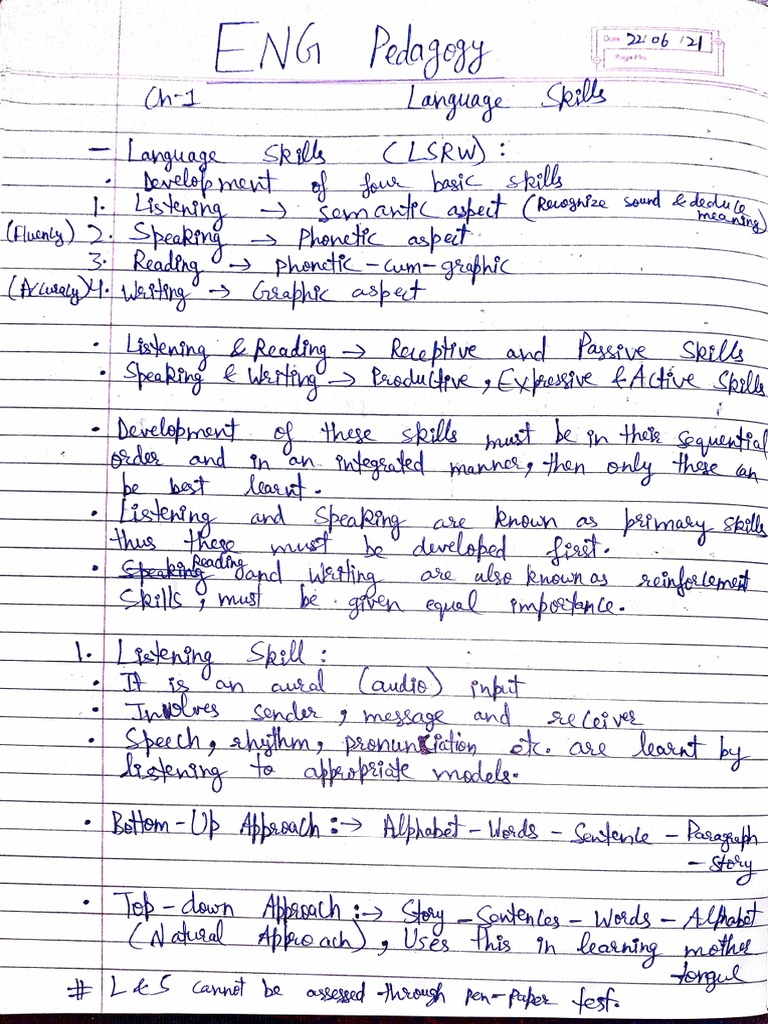 ENG Pedagogy
Date 22·06·'21
Page No.
Ch-1 Language Skills
— Language Skills (LSRW) :
• Development of four basic skills
1. Listening → Semantic aspect (Recognize sound & deduce meaning)
(Fluency) 2. Speaking → Phonetic aspect
3. Reading → Phonetic-cum-graphic
(Accuracy) 4. Writing → Graphic aspect
• Listening & Reading → Receptive and Passive Skills
• Speaking & Writing → Productive, Expressive & Active Skills
• Development of these skills must be in their sequential
order and in an integrated manner, then only these can
be best learnt.
• Listening and Speaking are known as primary skills
thus these must be developed first.
• Speaking Reading and Writing are also known as reinforcement
skills, must be given equal importance.
1. Listening Skill :
• It is an aural (audio) input
• Involves sender, message and receiver
• Speech, rhythm, pronunciation etc. are learnt by
listening to appropriate models.
• Bottom-Up Approach :→ Alphabet - Words - Sentence - Paragraph
- Story
• Top-down Approach :→ Story - Sentences - Words - Alphabet
(Natural Approach), Uses this in learning mother
tongue
# L & S cannot be assessed through pen-paper test.